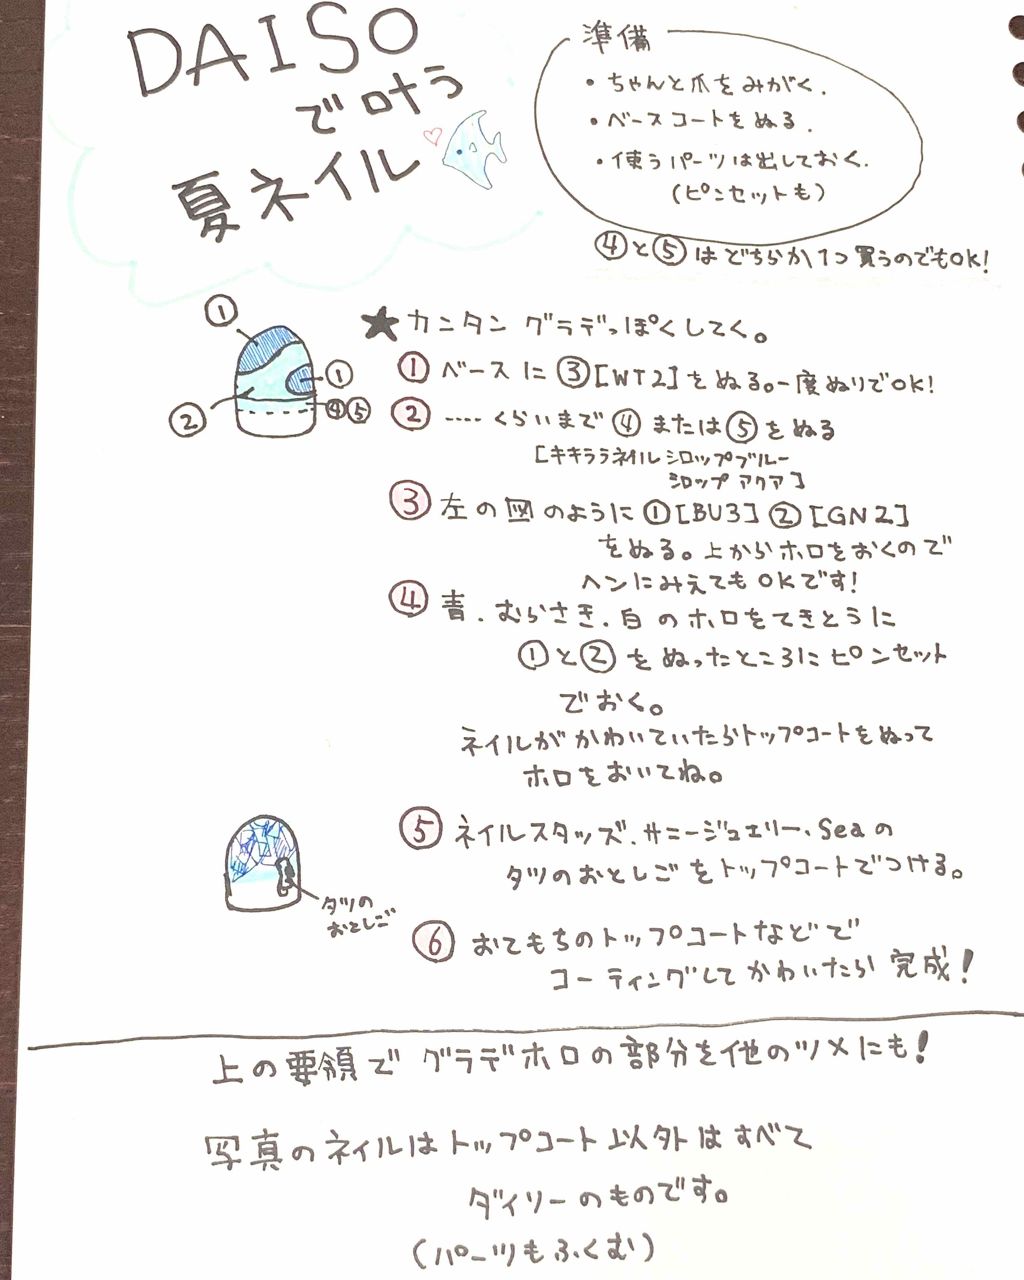 DAISO
で叶う
夏ネイル
準備
・ちゃんと爪をみがく.
・ベースコートをぬる.
・使うパーツは出しておく.
(ピンセットも)
④と⑤はどちらか1つ買うのでもOK!
①
①
②
④⑤
★カンタン グラデっぽくしてく。
① ベースに③[WT2]をぬる。一度ぬりでOK!
② ‐‐‐‐くらいまで④または⑤をぬる
[キキララネイルシロップブルー
シロップアクア]
③ 左の図のように①[BU3]②[GN2]
をぬる。上からホロをおくので
ヘンにみえてもOKです!
④ 青.むらさき.白のホロをてきとうに
①と②をぬったところにピンセット
でおく。
ネイルがかわいていたらトップコートをぬって
ホロをおいてね。
⑤ ネイルスタッズ.サニージュエリー、Seaの
タツのおとしごをトップコートでつける。
タツの
おとしご
⑥ おてもちのトップコートなどで
コーティングしてかわいたら完成!
上の要領でグラデホロの部分を他のツメにも!
写真のネイルはトップコート以外はすべて
ダイソーのものです。
(パーツもふくむ)